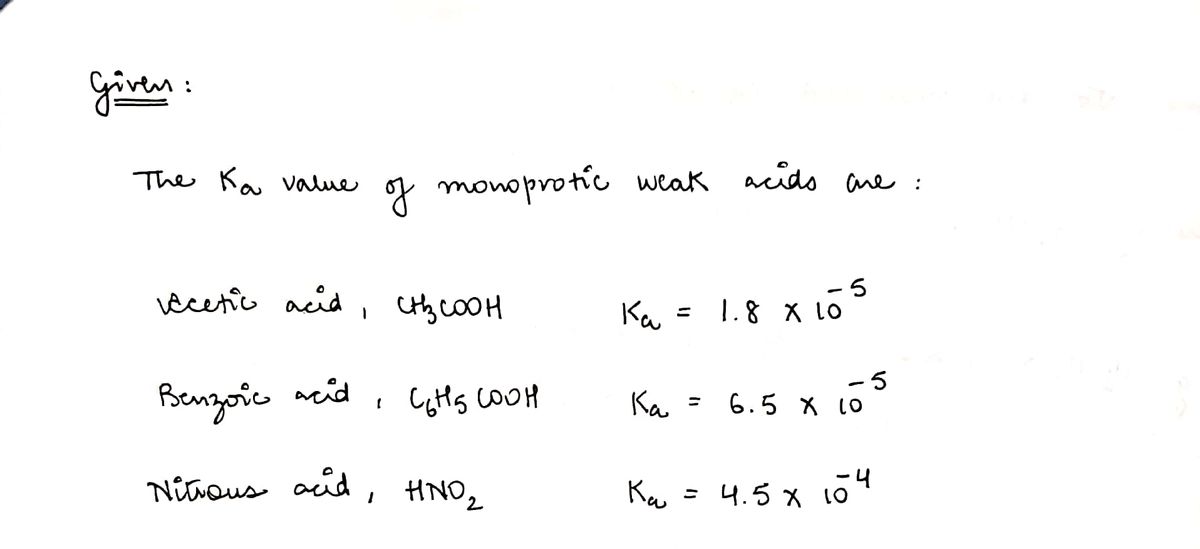 Given :
The Ka value of monoprotic weak acids are :
Acetic acid, CH₃COOH Ka = 1.8 × 10⁻⁵
Benzoic acid, C₆H₅COOH Ka = 6.5 × 10⁻⁵
Nitrous acid, HNO₂ Ka = 4.5 × 10⁻⁴